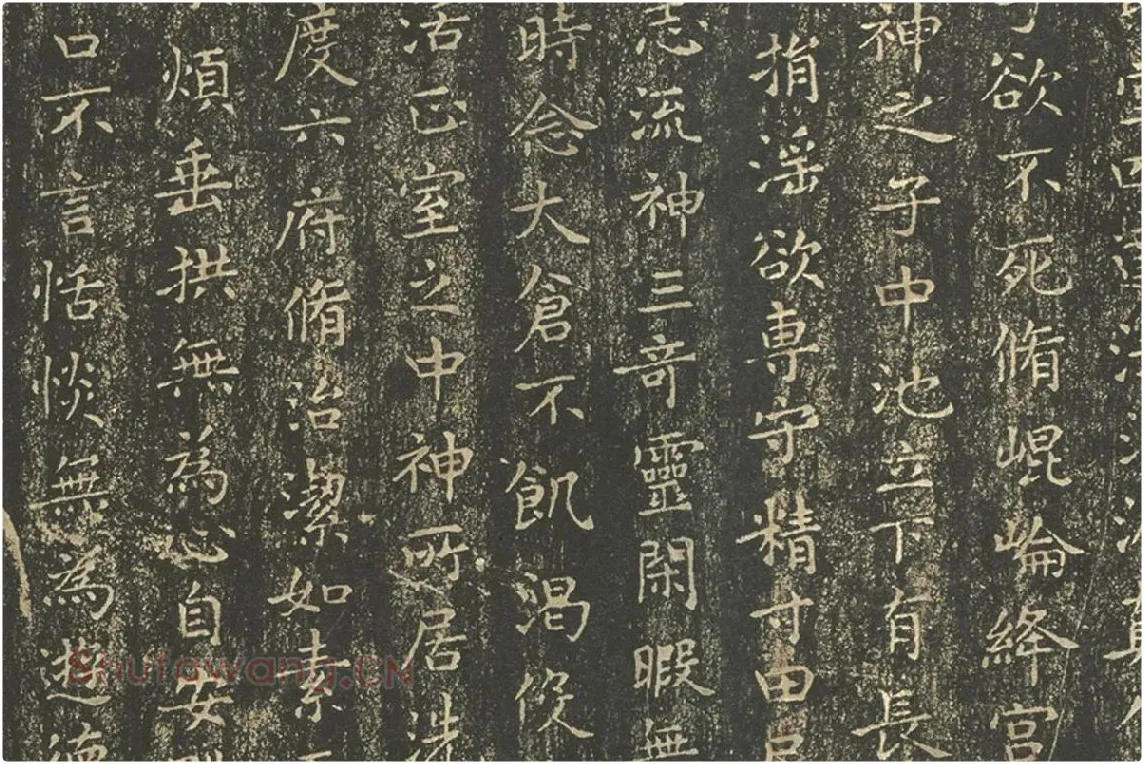 欲不死脩崐崘絳宮
神之子中池立下有長
捐滛欲專守精寸田
志流神三奇靈閑暇無
時念大倉不飢渴伇
活正室之中神所居洗
度六府脩治潔如素
煩垂拱無為心自安
口不言恬惔無為遊德
Shufawang.CN